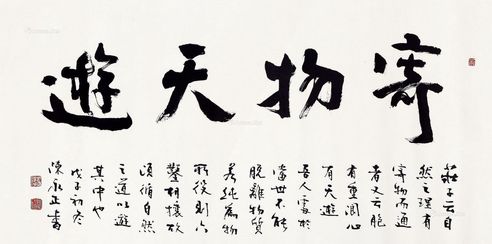 寄物天遊
莊子云自
然之理有
寄物而通
者又云胞
有重閬心
有天遊
吾人寄於
當世不能
脫離物質
若純為物
所役則六
鑿相攘故
須循自然
之道以遊
其中也
戊子初冬
陳永正書